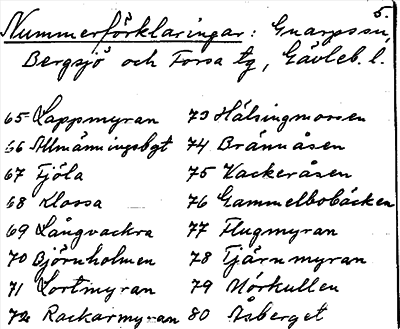 5.
Nummerförklaringar: Gnarps sn,
Bergsjö och Forsa tg, Gävleb. l.
65 Lappmyran 73 Hälsingmossen
66 Allmänningsbgt 74 Brännåsen
67 Fjöla 75 Vackeråsen
68 Klossa 76 Gammelbobäcken
69 Långvackra 77 Flugmyran
70 Björnholmen 78 Tjärnmyran
71 Lortmyran 79 Mörkullen
72 Rackarmyran 80 Åsberget